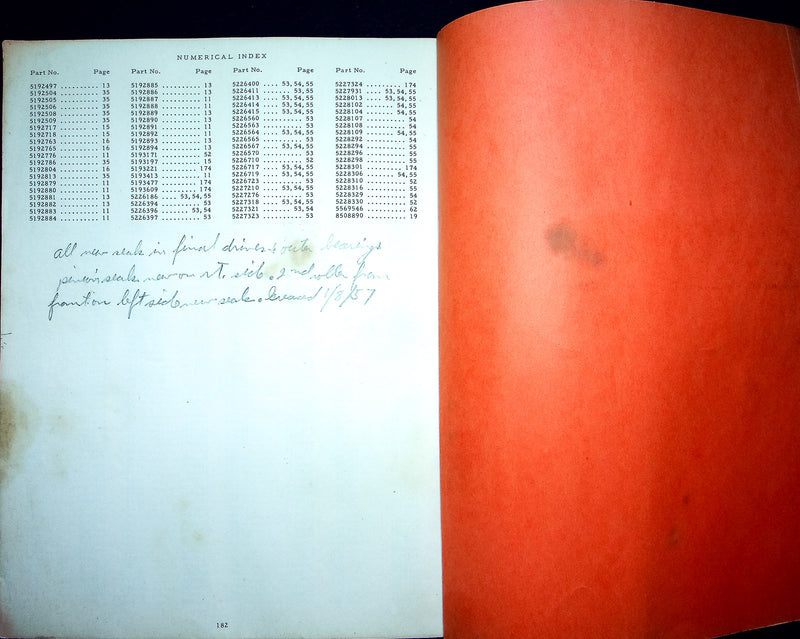 NUMERICAL INDEX
Part No. Page Part No. Page Part No. Page Part No. Page
5192497 .......... 13 5192885 .......... 13 5226400 .... 53, 54, 55 5227324 .......... 174
5192504 .......... 35 5192886 .......... 13 5226411 ........ 53, 55 5227931 .... 53, 54, 55
5192505 .......... 35 5192887 .......... 11 5226413 .... 53, 54, 55 5228013 .... 53, 54, 55
5192506 .......... 35 5192888 .......... 11 5226414 .... 53, 54, 55 5228102 ........ 54, 55
5192508 .......... 35 5192889 .......... 13 5226415 .... 53, 54, 55 5228104 ........ 54, 55
5192509 .......... 35 5192890 .......... 13 5226560 .......... 53 5228107 .......... 54
5192717 .......... 15 5192891 .......... 11 5226563 .......... 53 5228108 .......... 54
5192718 .......... 15 5192892 .......... 11 5226564 .... 53, 54, 55 5228109 ........ 54, 55
5192763 .......... 16 5192893 .......... 13 5226565 .......... 53 5228292 .......... 54
5192765 .......... 16 5192894 .......... 13 5226567 .... 53, 54, 55 5228294 .......... 55
5192776 .......... 11 5193171 .......... 52 5226570 .......... 53 5228296 .......... 55
5192786 .......... 35 5193197 .......... 15 5226710 .......... 52 5228298 .......... 55
5192804 .......... 16 5193221 .......... 174 5226717 .... 53, 54, 55 5228301 .......... 174
5192813 .......... 35 5193413 .......... 11 5226719 .... 53, 54, 55 5228306 ........ 54, 55
5192879 .......... 11 5193477 .......... 174 5226723 .......... 53 5228310 .......... 52
5192880 .......... 11 5193609 .......... 174 5227210 .... 53, 54, 55 5228316 .......... 55
5192881 .......... 13 5226186 .... 53, 54, 55 5227276 .......... 53 5228329 .......... 54
5192882 .......... 13 5226394 .......... 53 5227318 .... 53, 54, 55 5228330 .......... 52
5192883 .......... 11 5226396 ........ 53, 54 5227321 ........ 53, 54 5569546 .......... 62
5192884 .......... 11 5226397 .......... 53 5227323 .......... 53 8508890 .......... 19
all new seals in final drives & outer bearings
pinion seals new on rt. side. 2nd roller from
front on left side new seals. Greased 1/8/57
182